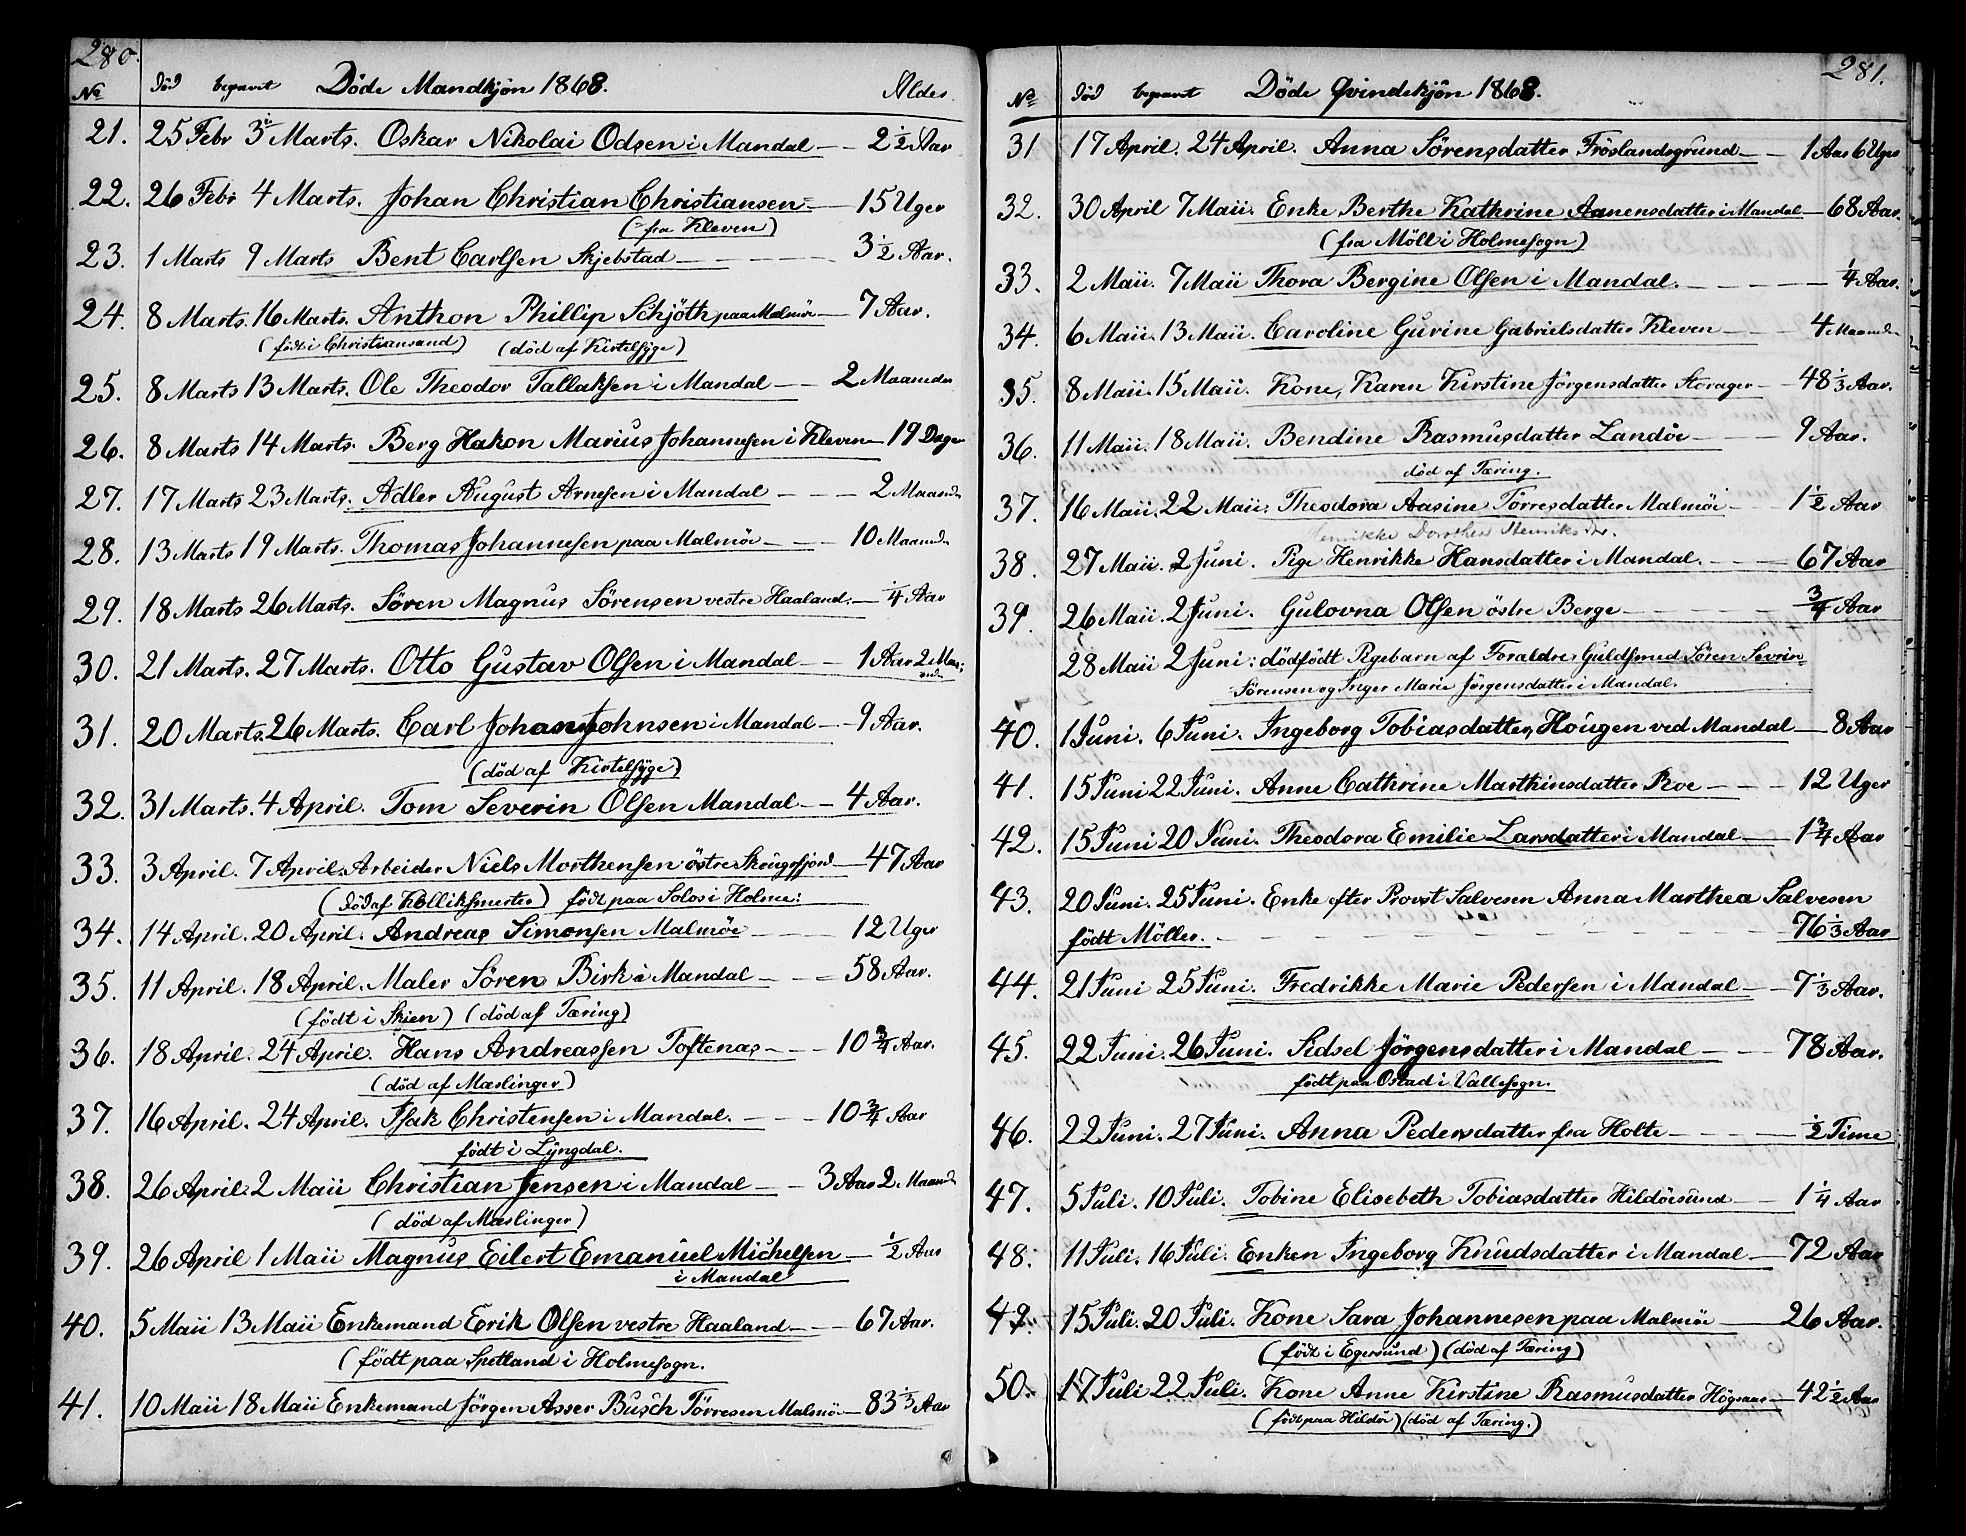 280.
No død begravet Döde Mandkjön 1868. Alder.
21. 25 Febr 3 Marts. Oskar Nikolai Odsen i Mandal 2 1/2 Aar
22. 26 Febr 4 Marts. Johan Christian Christiansen 15 Uger
(fra Kleven)
23. 1 Marts 9 Marts Bent Carlsen Skjebstad 3 1/2 Aar.
24. 8 Marts. 16 Marts. Anthon Phillip Schjöth paa Malmö 7 Aar.
(født i Christiansand) (död af Kirtelsyge)
25. 8 Marts 13 Marts. Ole Theodor Tallaksen i Mandal 2 Maaneder
26. 8 Marts 14 Marts. Berg Hakon Marius Johannesen i Kleven 19 Dage
27. 17 Marts 23 Marts. Adler August Arnesen i Mandal 2 Maaned
28. 13 Marts 19 Marts. Thomas Johannesen paa Malmöe 10 Maaned
29. 18 Marts 26 Marts. Sören Magnus Sörensen vestre Haaland. 1/4 Aar
30. 21 Marts. 27 Marts. Otto Gustav Olsen i Mandal 1 Aar 2 Maa-
neder
31. 20 Marts. 26 Marts. Carl Johan Johnsen i Mandal 9 Aar.
(död af Kirtelsyge)
32. 31 Marts. 4 April. Tom Severin Olsen Mandal 4 Aar.
33. 3 April. 7 April. Arbeider Niels Morthensen östre Skougsfjord 47 Aar
(död af Kolliksmerter) født paa Solos i Holme:
34. 14 April. 20 April. Andreas Simonsen Malmöe 12 Uger
35. 11 April. 18 April. Maler Sören Birk i Mandal 58 Aar.
(født i Skien) (död af Tæring)
36. 18 April. 24 April. Hans Andreassen Toftenas 10 3/4 Aar.
(död af Mæslinger)
37. 16 April. 24 April. Isak Christensen i Mandal. 10 3/4 Aar
födt i Lyngdal.
38. 26 April. 2 Maii Christian Jensen i Mandal 3 Aar 2 Maaned
(död af Mæslinger)
39. 26 April 1 Maii Magnus Eilert Emanuel Michelsen 1/2 Aar
i Mandal
40. 5 Maii 13 Maii Enkemand Erik Olsen vestre Haaland 67 Aar.
(födt paa Spetland i Holmesogn.
41. 10 Maii 18 Maii Enkemand Jörgen Asser Busch Törresen Malmöe 83 1/3 Aar
281.
No død begravet Döde Qvindekjön 1868.
31 17 April. 24 April. Anna Sörensdatter Fröslandsgrund 1 Aar 6 Uger
32. 30 April 7 Maii. Enke Berthe Kathrine Aanensdatter i Mandal 68 Aar.
(fra Möll i Holmesogn)
33. 2 Maii. 7 Maii Thora Bergine Olsen i Mandal. 1/4 Aar.
34. 6 Maii. 13 Maii. Caroline Gurine Gabrielsdatter Kleven 4 Maaned
35. 8 Maii. 15 Maii. Kone, Karen Kirstine Jörgensdatter Storager 48 1/3 Aar.
36. 11 Maii. 18 Maii. Bendine Rasmusdatter Landöe 9 Aar.
död af Tæring.
37. 16 Maii. 22 Maii. Theodora Aasine Törresdatter Malmöi 1 1/2 Aar
Henrikke Dorthea Henriksdr.
38. 27 Maii. 2 Juni. Pige Henrikke Hansdatter i Mandal. 67 Aar
39. 26 Maii. 2 Juni. Gulovna Olsen östre Berge 3/4 Aar
28 Maii 2 Juni: dödfödt Pigebarn af Foraldre Guldsmed Sören Severin
Sörensen og Inger Marie Jörgensdatter i Mandal.
40. 1 Juni. 6 Juni. Ingeborg Tobiasdatter, Hougen ved Mandal 8 Aar
41. 15 Juni 22 Juni. Anne Cathrine Marthinsdatter Roe 12 Uger
42. 15 Juni 20 Juni. Theodora Emilie Larsdatter i Mandal 1 3/4 Aar
43. 20 Juni. 25 Juni. Enke efter Provst Salvesen Anna Marthea Salvesen
født Möller. 76 1/3 Aar
44. 21 Juni 25 Juni. Fredrikke Marie Pedersen i Mandal 7 1/3 Aar.
45. 22 Juni. 26 Juni. Sidsel Jörgensdatter i Mandal 78 Aar.
födt paa Ostad i Vallesogn.
46. 22 Juni. 27 Juni. Anna Pedersdatter fra Holte 1/2 Time
47. 5 Juli. 10 Juli. Tobine Elisebeth Tobiasdatter Hildöesund 1 1/4 Aar
48. 11 Juli. 16 Juli. Enken Ingeborg Knudsdatter i Mandal 72 Aar
49. 15 Juli. 20 Juli. Kone Sara Johannesen paa Malmöi 26 Aar.
(födt i Egersund) (död af Tæring)
50. 17 Juli 22 Juli. Kone Anne Kirstine Rasmusdatter Högsaas 42 1/2 Aar
(födt paa Hildöe) (död af Tæring.)